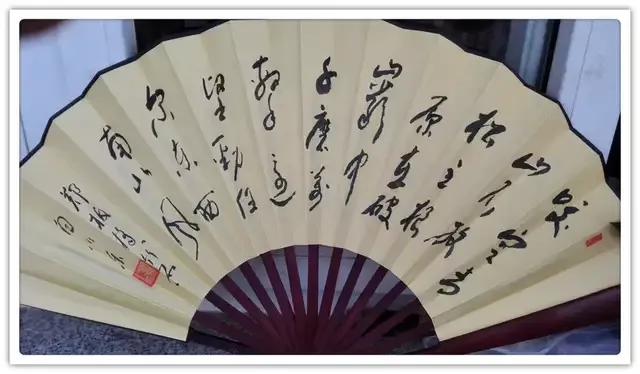 咬定青
山不放
松立根
原在破
巖中
千磨萬
擊还
坚劲任
尔东西
南北风
郑板桥诗竹石